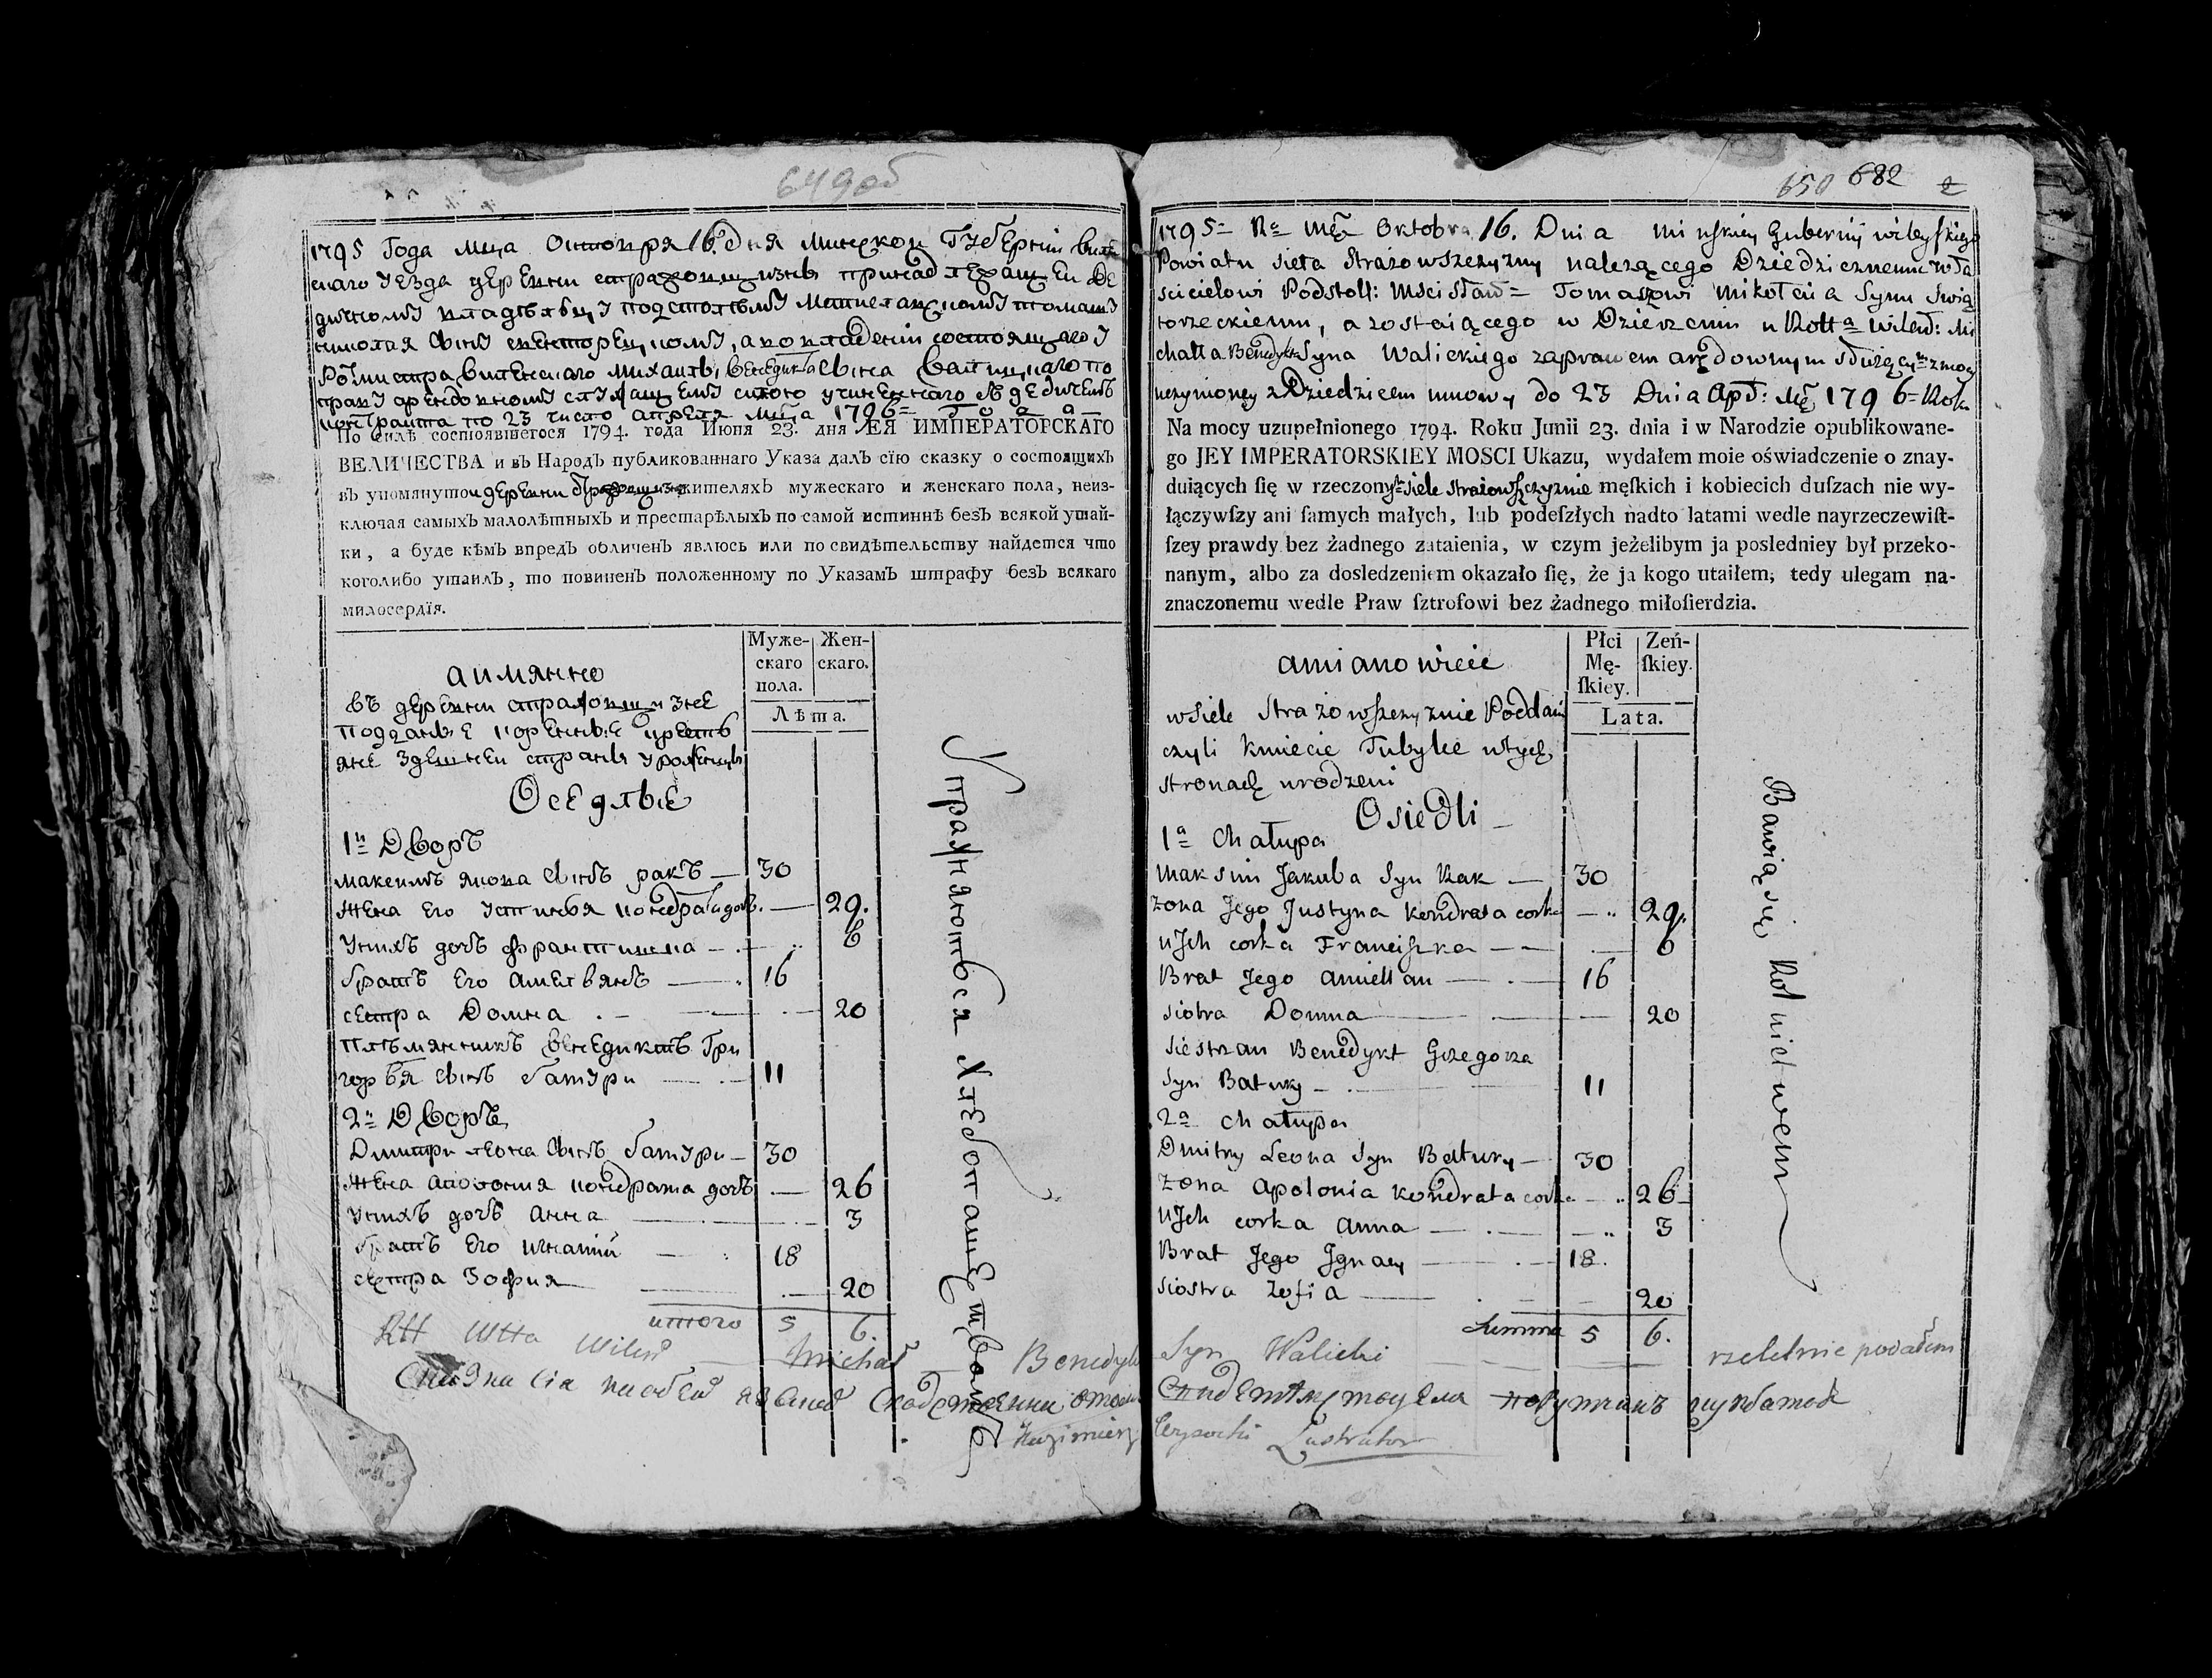 649 об
1795 Года мца Октовря 16. Дня Минской Губернiи Вилей
скаго уезда деревни стражовщизны принадлежащей де
дичному владельцу подстолему Мстиславскому томашу
николая сыну свенторецкому, а во владенiи состоящаго у
Ротмистра виленскаго михаила венедикта сына Валицкаго по
праву арендовному служащему силою учиненнаго з дедичемъ
контракта по 23 число апреля мца 1796= Года
По силѣ состоявшегося 1794. года Июня 23. дня ЕЯ ИМПЕРАТОРСКАГО
ВЕЛИЧЕСТВА и въ Народъ публикованнаго Указа далъ сїю сказку о состоящихъ
въ упомянутои деревни Стражовщизне жителяхъ мужескаго и женскаго пола, неиз-
ключая самыхъ малолѣтныхъ и престарѣлыхъ по самой истиннѣ безъ всякой утай-
ки, а буде кѣмъ впредъ обличенъ явлюсь или по свидѣтельству найдется что
коголибо утаилъ, то повиненъ положенному по Указамъ штрафу безъ всякаго
милосердїя.
Муже-
скаго
пола.
Жен-
скаго.
Лѣта.
а имянно
въ деревни стражовщизне
подданые коренные крестья
яне здешней страны уроженцы
Оседлые
1й Дворъ
максимъ якова сынъ ракъ — 30
жена его устинья кондрата дочь. — 29.
у нихъ дочь франтишка — 6
братъ его амелянъ — 16
сестра Домна — 20
племянникъ венедиктъ Гри
горья сынъ батури — 11
2й Дворъ
Дмитри леона сынъ батури — 30
жена аполония кондрата дочь — 26
у нихъ дочь анна — 3
братъ его игнатiй — 18
сестра Зофия — 20
итого 5 6.
Упражняются Хлебопашетвомъ
650 682 2
1795= Ru Mca Oktobra 16. Dnia Minskiey Gubernij wileyskiego
Powiatu sieła Strażowszczyzny należącego Dziedzicznemu wła
scicielowi Podstoli: Mscisław= Tomaszowi Mikołaia Synu Swią
torzeckiemu, a zostaiącego w Dzierzeniu u Rotta Wileń: Mi
chała Benedykta Syna Walickiego za prawem arędownym służącym z mocy
uczynioney z Dziedzicem umowy do 23 Dnia Apr: Mca 1796= Roku
Na mocy uzupełnionego 1794. Roku Junii 23. dnia i w Narodzie opublikowane-
go JEY IMPERATORSKIEY MOSCI Ukazu, wydałem moie oświadczenie o znay-
duiących ſię w rzeczonym siele Strażowszczyznie męſkich i kobiecich duſzach nie wy-
łączywſzy ani ſamych małych, lub podeſzłych nadto latami wedle nayrzeczewiſt-
ſzey prawdy bez żadnego zataienia, w czym jeżelibym ja posledniey był przeko-
nanym, albo za dosledzeniem okazało ſię, że ja kogo utaiłem, tedy ulegam na-
znaczonemu wedle Praw ſztrofowi bez żadnego miłoſierdzia.
Płci
Mę-
ſkiey.
Zeń-
ſkiey.
Lata.
amianowicie
w siele Strażowszczyznie Poddani
czyli kmiecie Tubylce w tych
stronach urodzeni
Osiedli
1a Chałupa
Maksim Jakuba Syn Rak — 30
żona Jego Justyna kondrata corka — 29.
u Jch corka Franciszka — 6
Brat Jego amielian — 16
siostra Domna — 20
siestrzan Benedykt Grzegorza
Syn Batury — 11
2a chałupa
Dmitry Leona Syn Batury — 30
żona apolonia kondrata corka — 26
u Jch corka anna — 3
Brat Jego Jgnacy — 18.
siostra zofia — 20
Summa 5 6.
Bawią się Rolnictwem
Wileń Michał Benedykt Syn Walicki rzetelnie podałem
Kazimierz Wysocki Lustrator